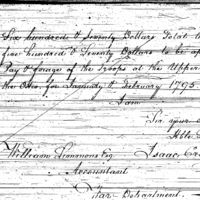 Six hundred & Seventy Dollars Total to
five hundred & Seventy Dollars to be ap
Pay & forage of the Troops at the Upper
the Ohio, for January & February 1795
I am
Sir your o
Hble
William Simmons Esq Isaac Cra
Accountant
War Department